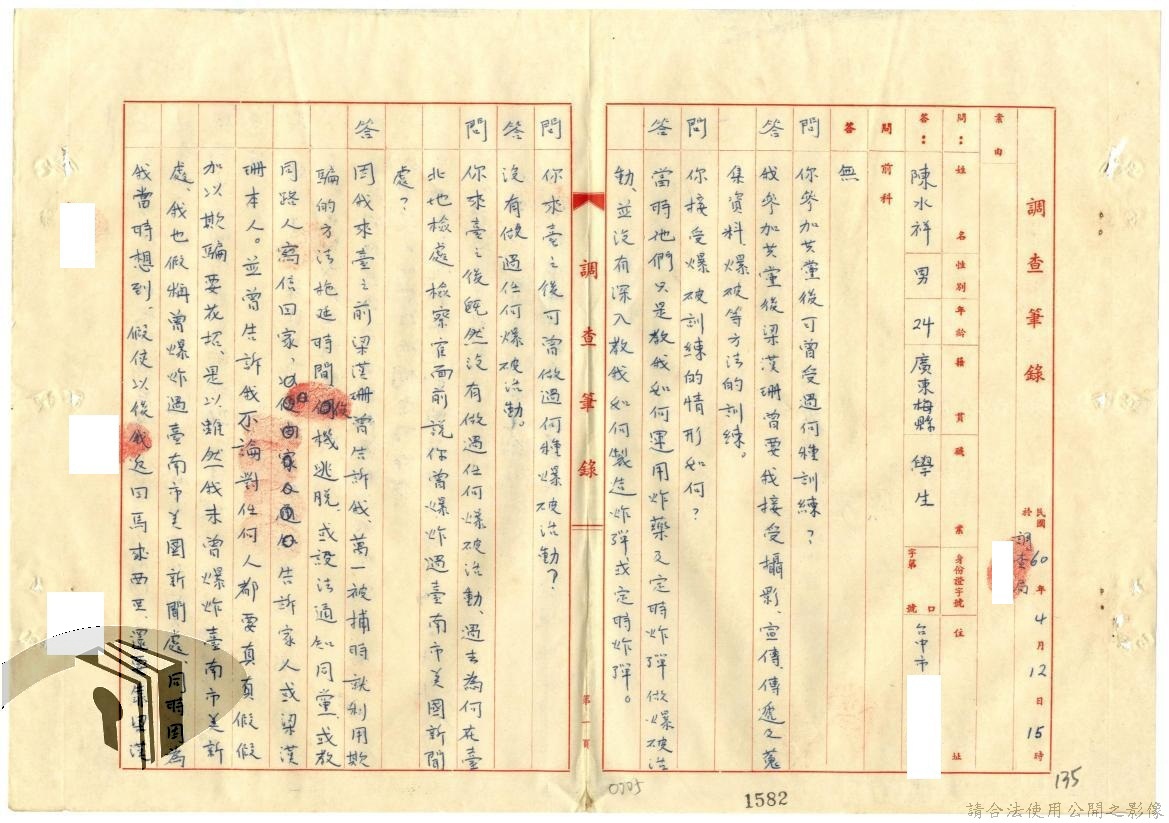 調查筆錄
民國60年4月12日15時
於調查局
案由
問：姓名 性別 年齡 籍貫 職業 身份證字號 住址
答：陳水祥 男 24 廣東梅縣 學生 字第 號 口 台中市
問 前科
答 無
問 你參加共黨後可曾受過何種訓練？
答 我參加共黨後梁漢珊曾要我接受攝影、宣傳、傳遞及蒐
集資料、爆破等方法的訓練。
問 你接受爆破訓練的情形如何？
答 當時他們只是教我如何運用炸藥及定時炸彈做爆破活
動、並沒有深入教我如何製造炸彈或定時炸彈。
調查筆錄
第一頁
問 你來臺之後可曾做過何種爆破活動？
答 沒有做過任何爆破活動。
問 你來臺之後既然沒有做過任何爆破活動、過去為何在臺
北地檢處、檢察官面前說你曾爆炸過臺南市美國新聞
處？
答 因我來臺之前梁漢珊曾告訴我、萬一被捕時就利用欺
騙的方法拖延時間伺機逃脫、或設法通知同黨、或教
同路人寫信回家、告訴家人或梁漢
珊本人。並曾告訴我不論對任何人都要真真假假
加以欺騙要花招、是以雖然我未曾爆炸臺南市美新
處、我也假稱曾爆炸過臺南市美國新聞處、同時因為
我當時想到、假使以後我返回馬來西亞、還要靠梁漢
0705
1582
135
請合法使用公開之影像